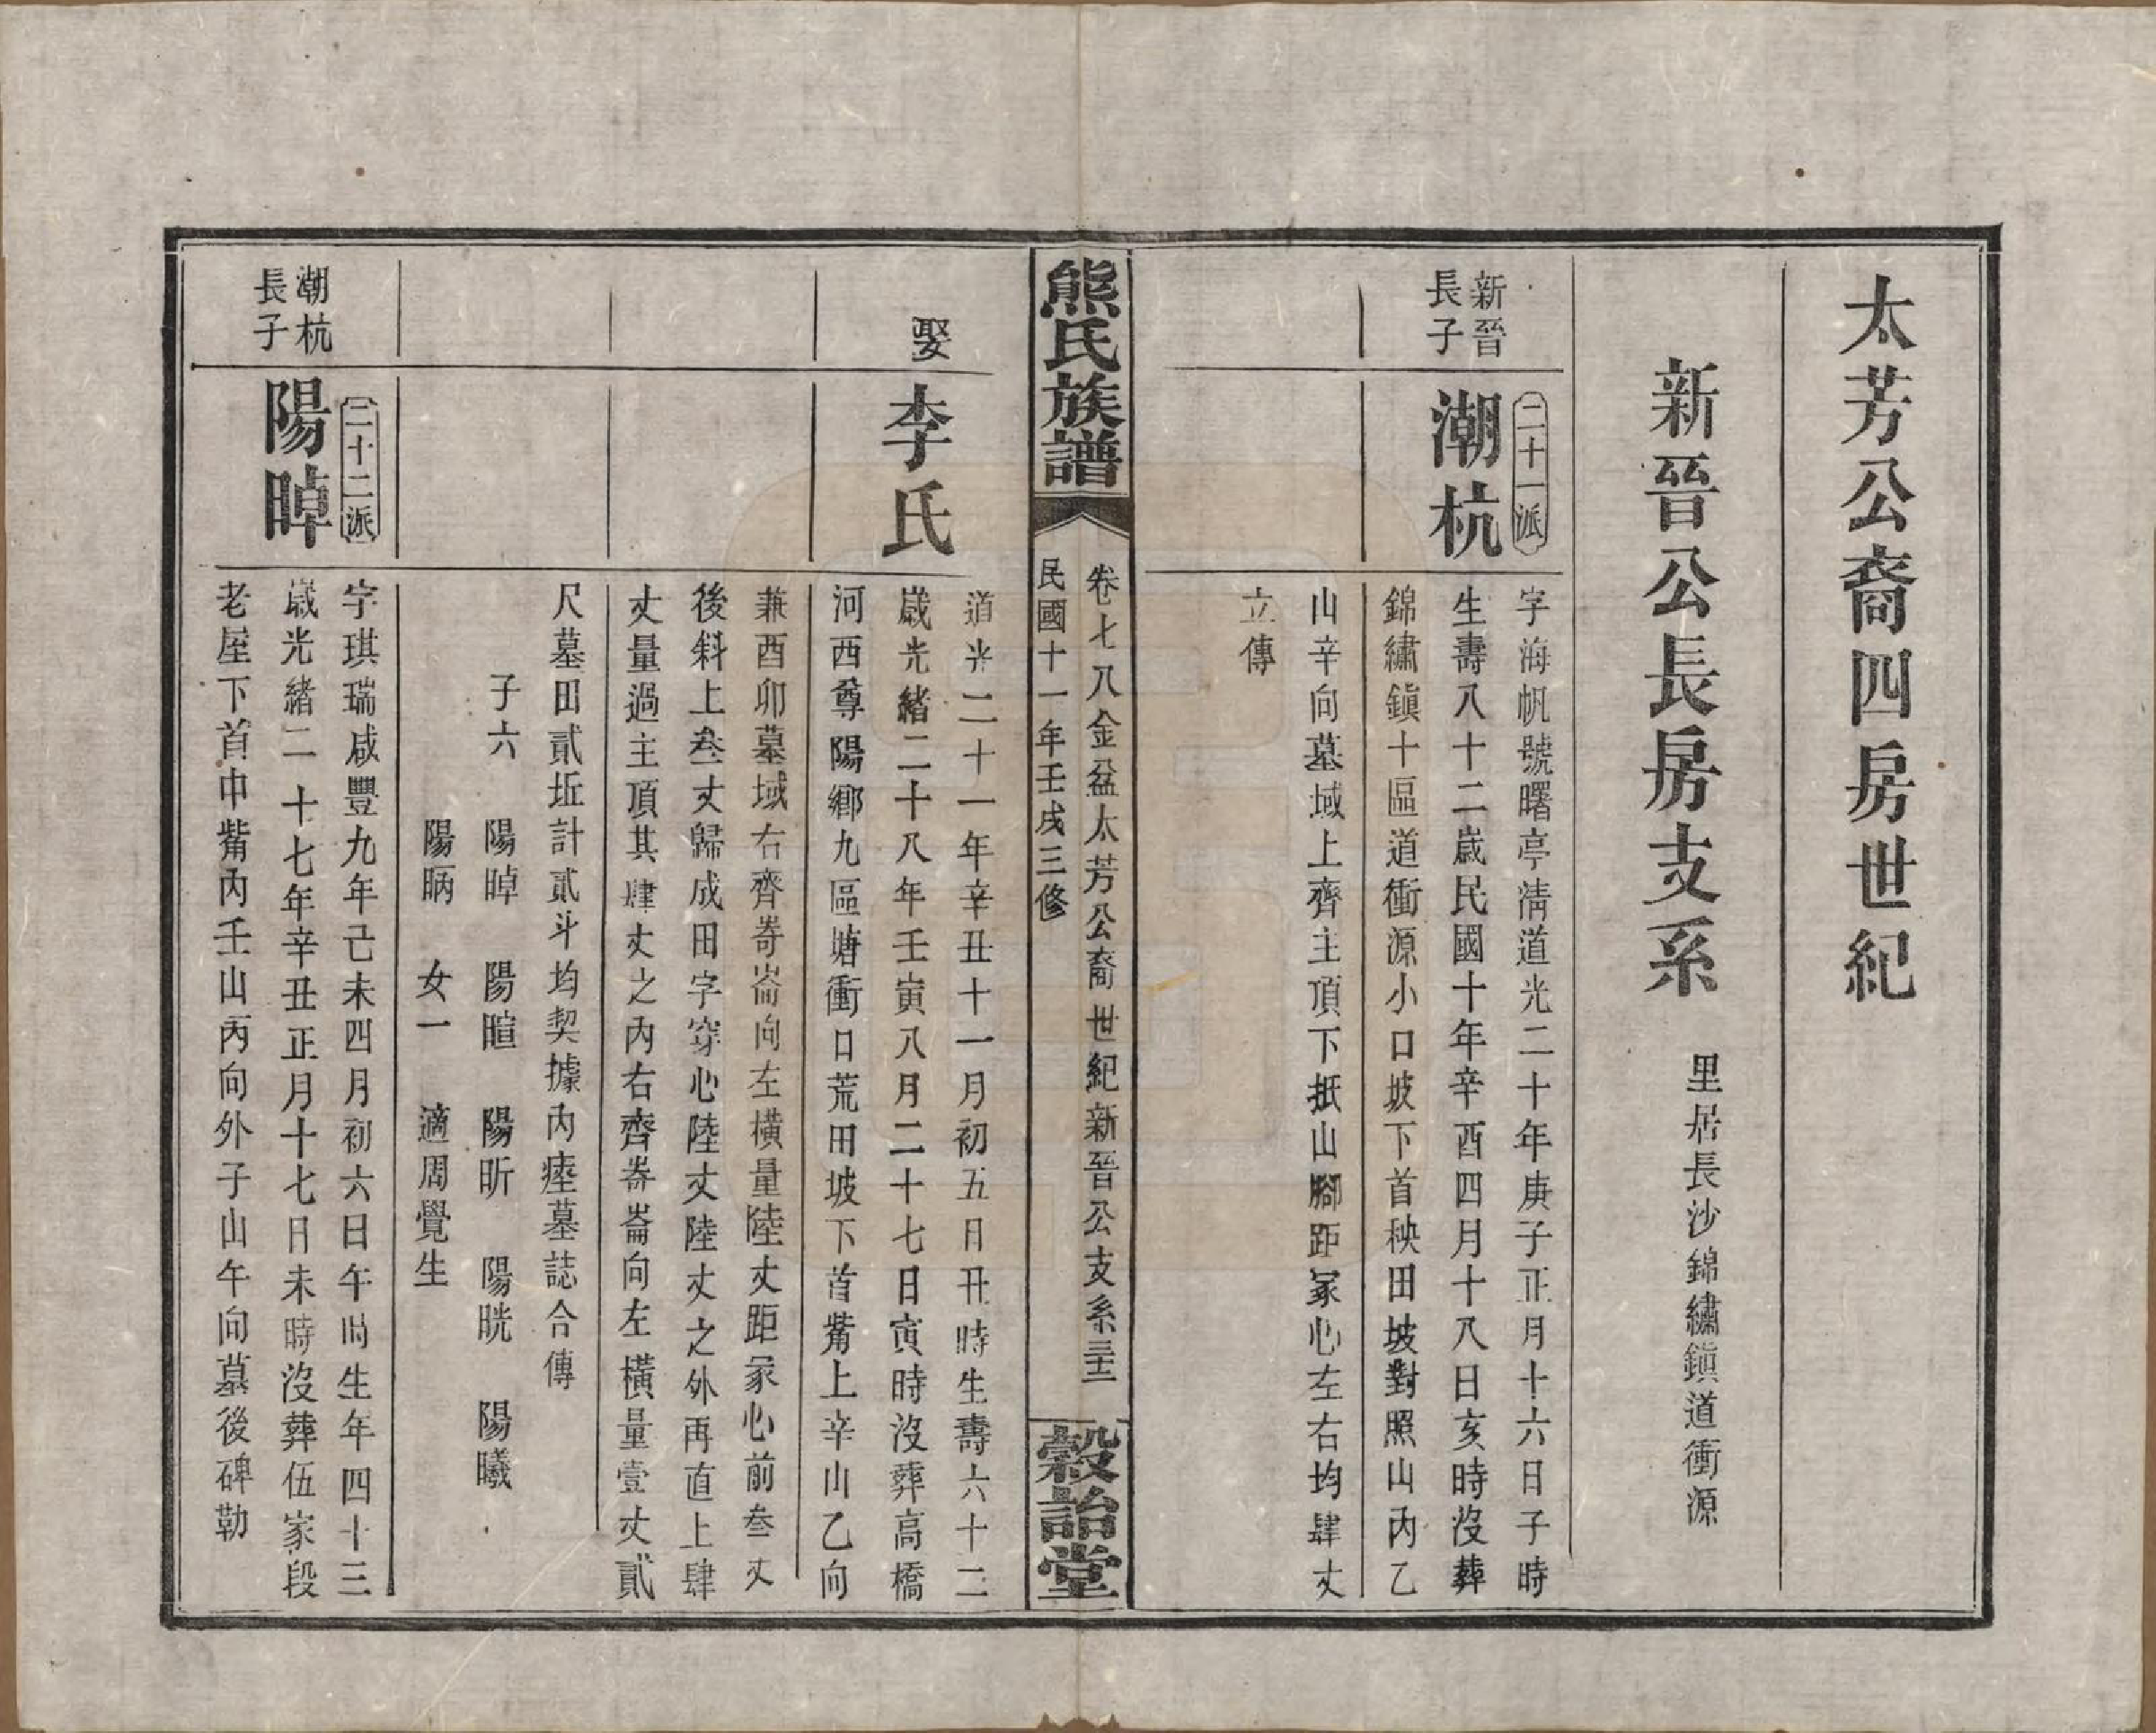 太芳公裔四房世紀
新晉公長房支系 里居長沙錦繡鎮道衝源
新晉
長子
二十一派
潮杭
字海帆號曙亭清道光二十年庚子正月十六日子時
生壽八十二歲民國十年辛酉四月十八日亥時沒葬
錦繡鎮十區道衝源小口坡下首秧田坡對照山內乙
山辛向墓域上齊主頂下抵山腳距冢心左右均肆丈
立傳
熊氏族譜
卷七八金盆太芳公裔世紀新晉公支系
民國十一年壬戌三修
穀詒堂
娶
李氏
道光二十一年辛丑十一月初五日丑時生壽六十二
歲光緒二十八年壬寅八月二十七日寅時沒葬高橋
河西尊陽鄉九區塘衝口荒田坡下首觜上辛山乙向
兼酉卯墓域右齊崙向左橫量陸丈距冢心前叁丈
後斜上叁丈歸成田字穿心陸丈陸丈之外再直上肆
丈量過主頂其肆丈之內右齊崙向左橫量壹丈貳
尺墓田貳坵計貳斗均契據內瘞墓誌合傳
子六 陽晫 陽暄 陽昕 陽晄 陽曦
陽昞 女一 適周覺生
潮杭
長子
二十二派
陽晫
字琪瑞咸豐九年己未四月初六日午時生年四十三
歲光緒二十七年辛丑正月十七日未時沒葬伍家段
老屋下首中觜內壬山丙向外子山午向墓後碑勒